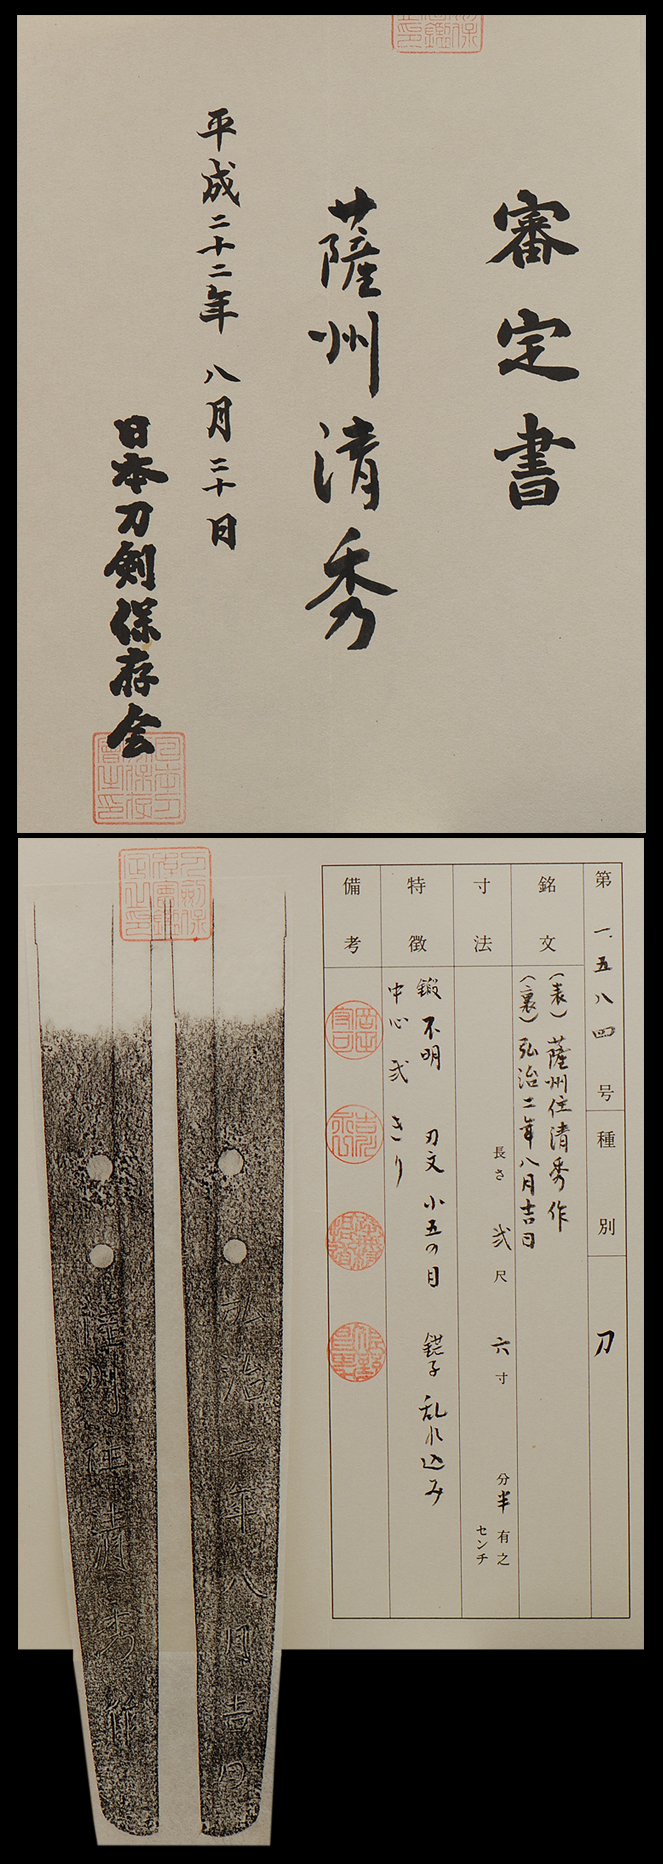 審定書
薩州清秀
平成二十二年 八月二十日
日本刀剣保存会
第 一、五八四 号
種別
刀
銘文
(表)薩州住清秀作
(裏)弘治二年八月吉日
寸法
長さ 弐尺 六寸 分半有之
センチ
特徴
鍛 不明 刃文 小五の目 鋩子 乱れ込み
中心 弐 きり
備考
弘治二年八月吉日
薩州住清秀作